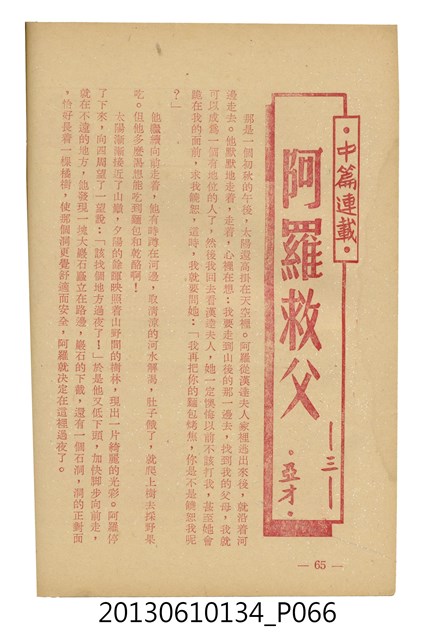 •中篇連載•
阿羅救父
—三—
•亞才•
那是一個初秋的午後，太陽還高掛在天空裡。阿羅從漢達夫人家裡逃出來後，就沿着河
邊走去。他默默地走着，走着，心裡在想：我要走到山後的那一邊去，找到我的父母，我就
可以成爲一個有地位的人了，然後我回去看漢達夫人，她一定懊悔以前不該打我，甚至她會
跪在我的面前，求我饒恕，這時，我就要問她：「我再把你的麵包烤焦，你是不是饒恕我呢
？」
他繼續向前走着，他有時蹲在河邊，取清凉的河水解渴，肚子餓了，就爬上樹去採野果
吃。但他多麼渴想能吃到麵包和乾酪啊！
太陽漸漸接近了山巔，夕陽的餘暉映照着山野間的樹林，現出一片綺麗的光彩。阿羅停
了下來，向四周望了一望說：「該找個地方過夜了！」於是他又低下頭，加快脚步向前走，
就在不遠的地方，他發現一塊大巖石矗立在路邊，巖石的下截，還有一個石洞，洞的正對面
，恰好長着一棵橘樹，使那個洞更覺舒適而安全，阿羅就決定在這裡過夜了。
— 65 —
20130610134_P066